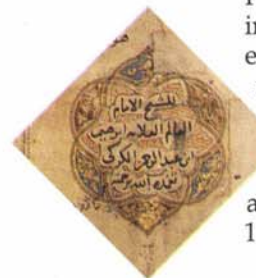 للشيخ الامام
العالم العلامه ابرهيم
ابن عبد الرحمن الكركي
تغمده الله برحمته
in
e
a
1